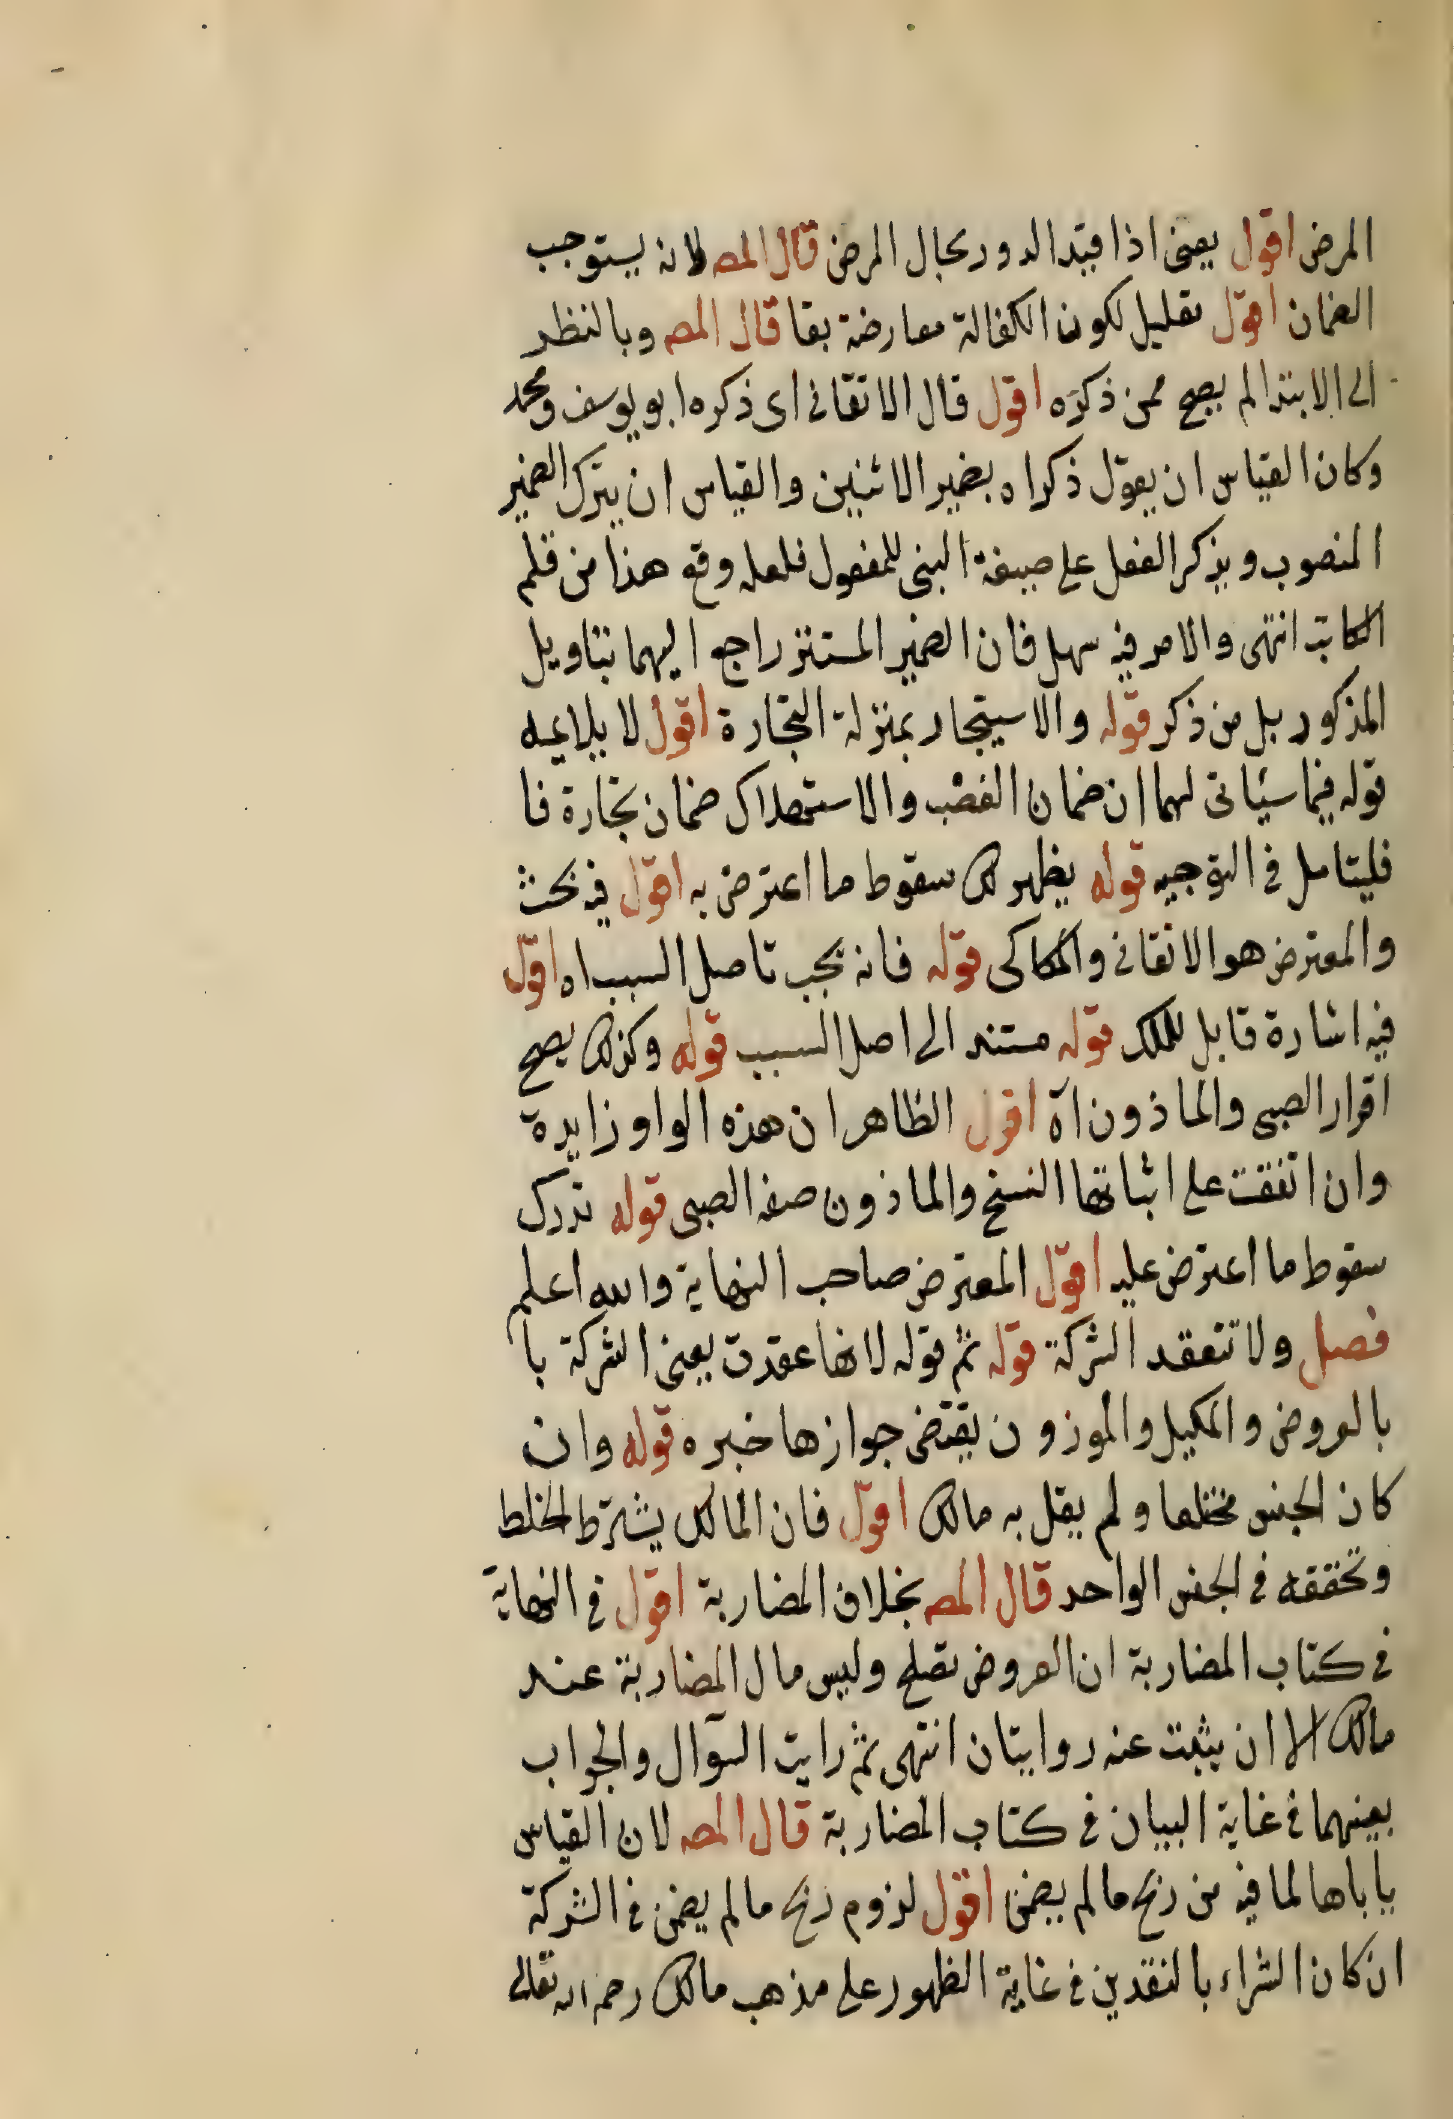 المرض اقول يعنى اذا قيد الدور بحال المرض قال المص لانه يستوجب
الضمان اقول تعليل لكون الكفالة معارضة بقا قال المص وبالنظر
الى الابتدا لم يصح ممن ذكره اقول قال الاتقانى اى ذكره ابو يوسف ومحمد
وكان القياس ان يقول ذكراه بضمير الاثنين والقياس ان يترك الضمير
المنصوب ويذكر الفعل على صيغة المبنى للمفعول فلعله وقع هذا من قلم
الكاتب انتهى والامر فيه سهل فان الضمير المستتر راجع اليهما بتاويل
المذكور بل من ذكر قوله والاستيجار بمنزلة التجارة اقول لا يلايمه
قوله فيما سياتى لهما ان ضمان الغصب والاستهلاك ضمان تجارة فا
فليتامل فى التوجيه قوله يظهر لك سقوط ما اعترض به اقول فيه بحث
والمعترض هو الاتقانى والكاكى قوله فانه يجب تاصل السبب اه اقول
فيه اشارة قابل للملك قوله مستند الى اصل السبب قوله وكذلك يصح
اقرار الصبى والماذون آه اقول الظاهر ان هذه الواو زايدة
وان اتفقت على اثباتها النسخ والماذون صفة الصبى قوله تدرك
سقوط ما اعترض عليه اقول المعترض صاحب النهاية والله اعلم
فصل ولا تنعقد الشركة قوله ثم قوله لانها عقدت يعنى الشركة با
بالعروض والمكيل والموزون يقتضى جوازها خبره قوله وان
كان الجنس مختلفا ولم يقل به مالك اقول فان المالك يشترط الخلط
وتحققه فى الجنس الواحد قال المص بخلاف المضاربة اقول فى النهاية
فى كتاب المضاربة ان العروض تصلح وليس مال المضاربة عند
مالك الا ان يثبت عنه روايتان انتهى ثم رايت السوال والجواب
بعينهما فى غاية البيان فى كتاب المضاربة قال المص لان القياس
ياباها لما فيه من ربح ما لم يضمن اقول لزوم ربح ما لم يضمن فى الشركة
ان كان الشراء بالنقدين فى غاية الظهور على مذهب مالك رحمه الله تعالى